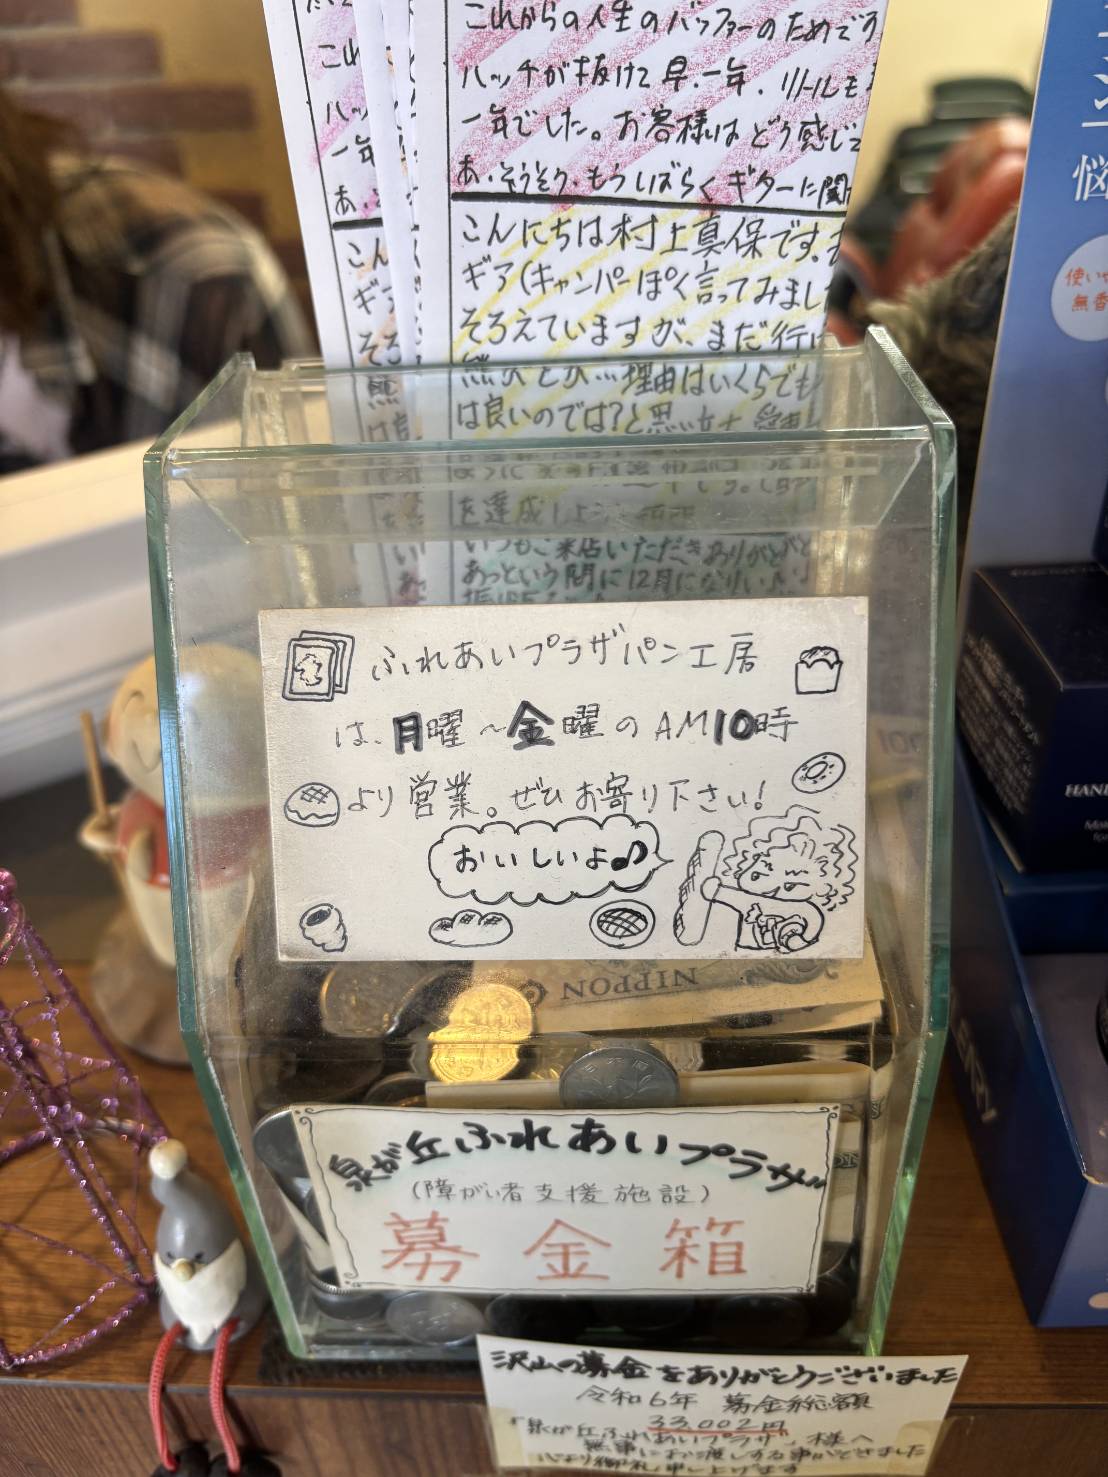 これからの人生のバッファーのためです
ハッチが抜けて早一年、リトルモ
一年でした。お客様はどう感じて
あ、そうそう、もうしばらくギターに関
こんにちは村上真保です。
ギア(キャンパーぽく言ってみまし
そろえていますが、まだ行
熊がとか…理由はいくらでも
は良いのでは?と思い
を達成しよう
いつもご来店いただきありがと
あっという間に12月になり
これ
ハッ
一年
あ、
こん
ギア
そろ
熊
ふれあいプラザパン工房
は、月曜〜金曜のAM10時
より営業。ぜひお寄り下さい!
おいしいよ♪
NIPPON
泉が丘ふれあいプラザ
(障がい者支援施設)
募金箱
沢山の募金をありがとうございました
令和6年 募金総額
33,002円
「泉が丘ふれあいプラザ」様へ
無事にお渡しする事ができました
心より御礼申し上げます
悩
使い
無香
HAND